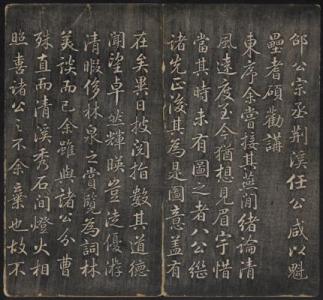 邵公宗丞荆溪任公咸以魁
壘耆碩勸講
東序余嘗接其燕閒緒論清
風遠度至今猶想見眉宇惜
當其時未有圖之者八公繼
諸先正後其為是圖意蓋有
在矣異日披閱指數其道德
聞望卓然輝暎豈徒優游
清暇侈林泉之賞賢為詞林
美談而已余雖與諸公分曹
殊直而清溪秀石間燈火相
照喜諸公之不余棄也故不